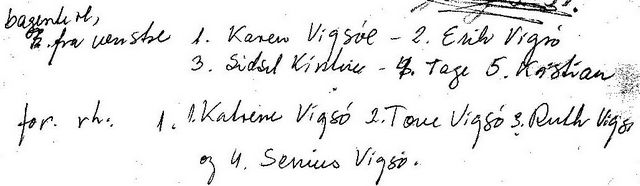 bagerste rk,
fra venstre 1. Karen Vigsöe - 2. Erik Vigsö
3. Sidsel - 4. Tage 5. Kristian
for. rk. 1. 1. Katrene Vigsó 2. Tove Vigsó 3. Ruth Vigsö
og 4. Senius Vigsö.